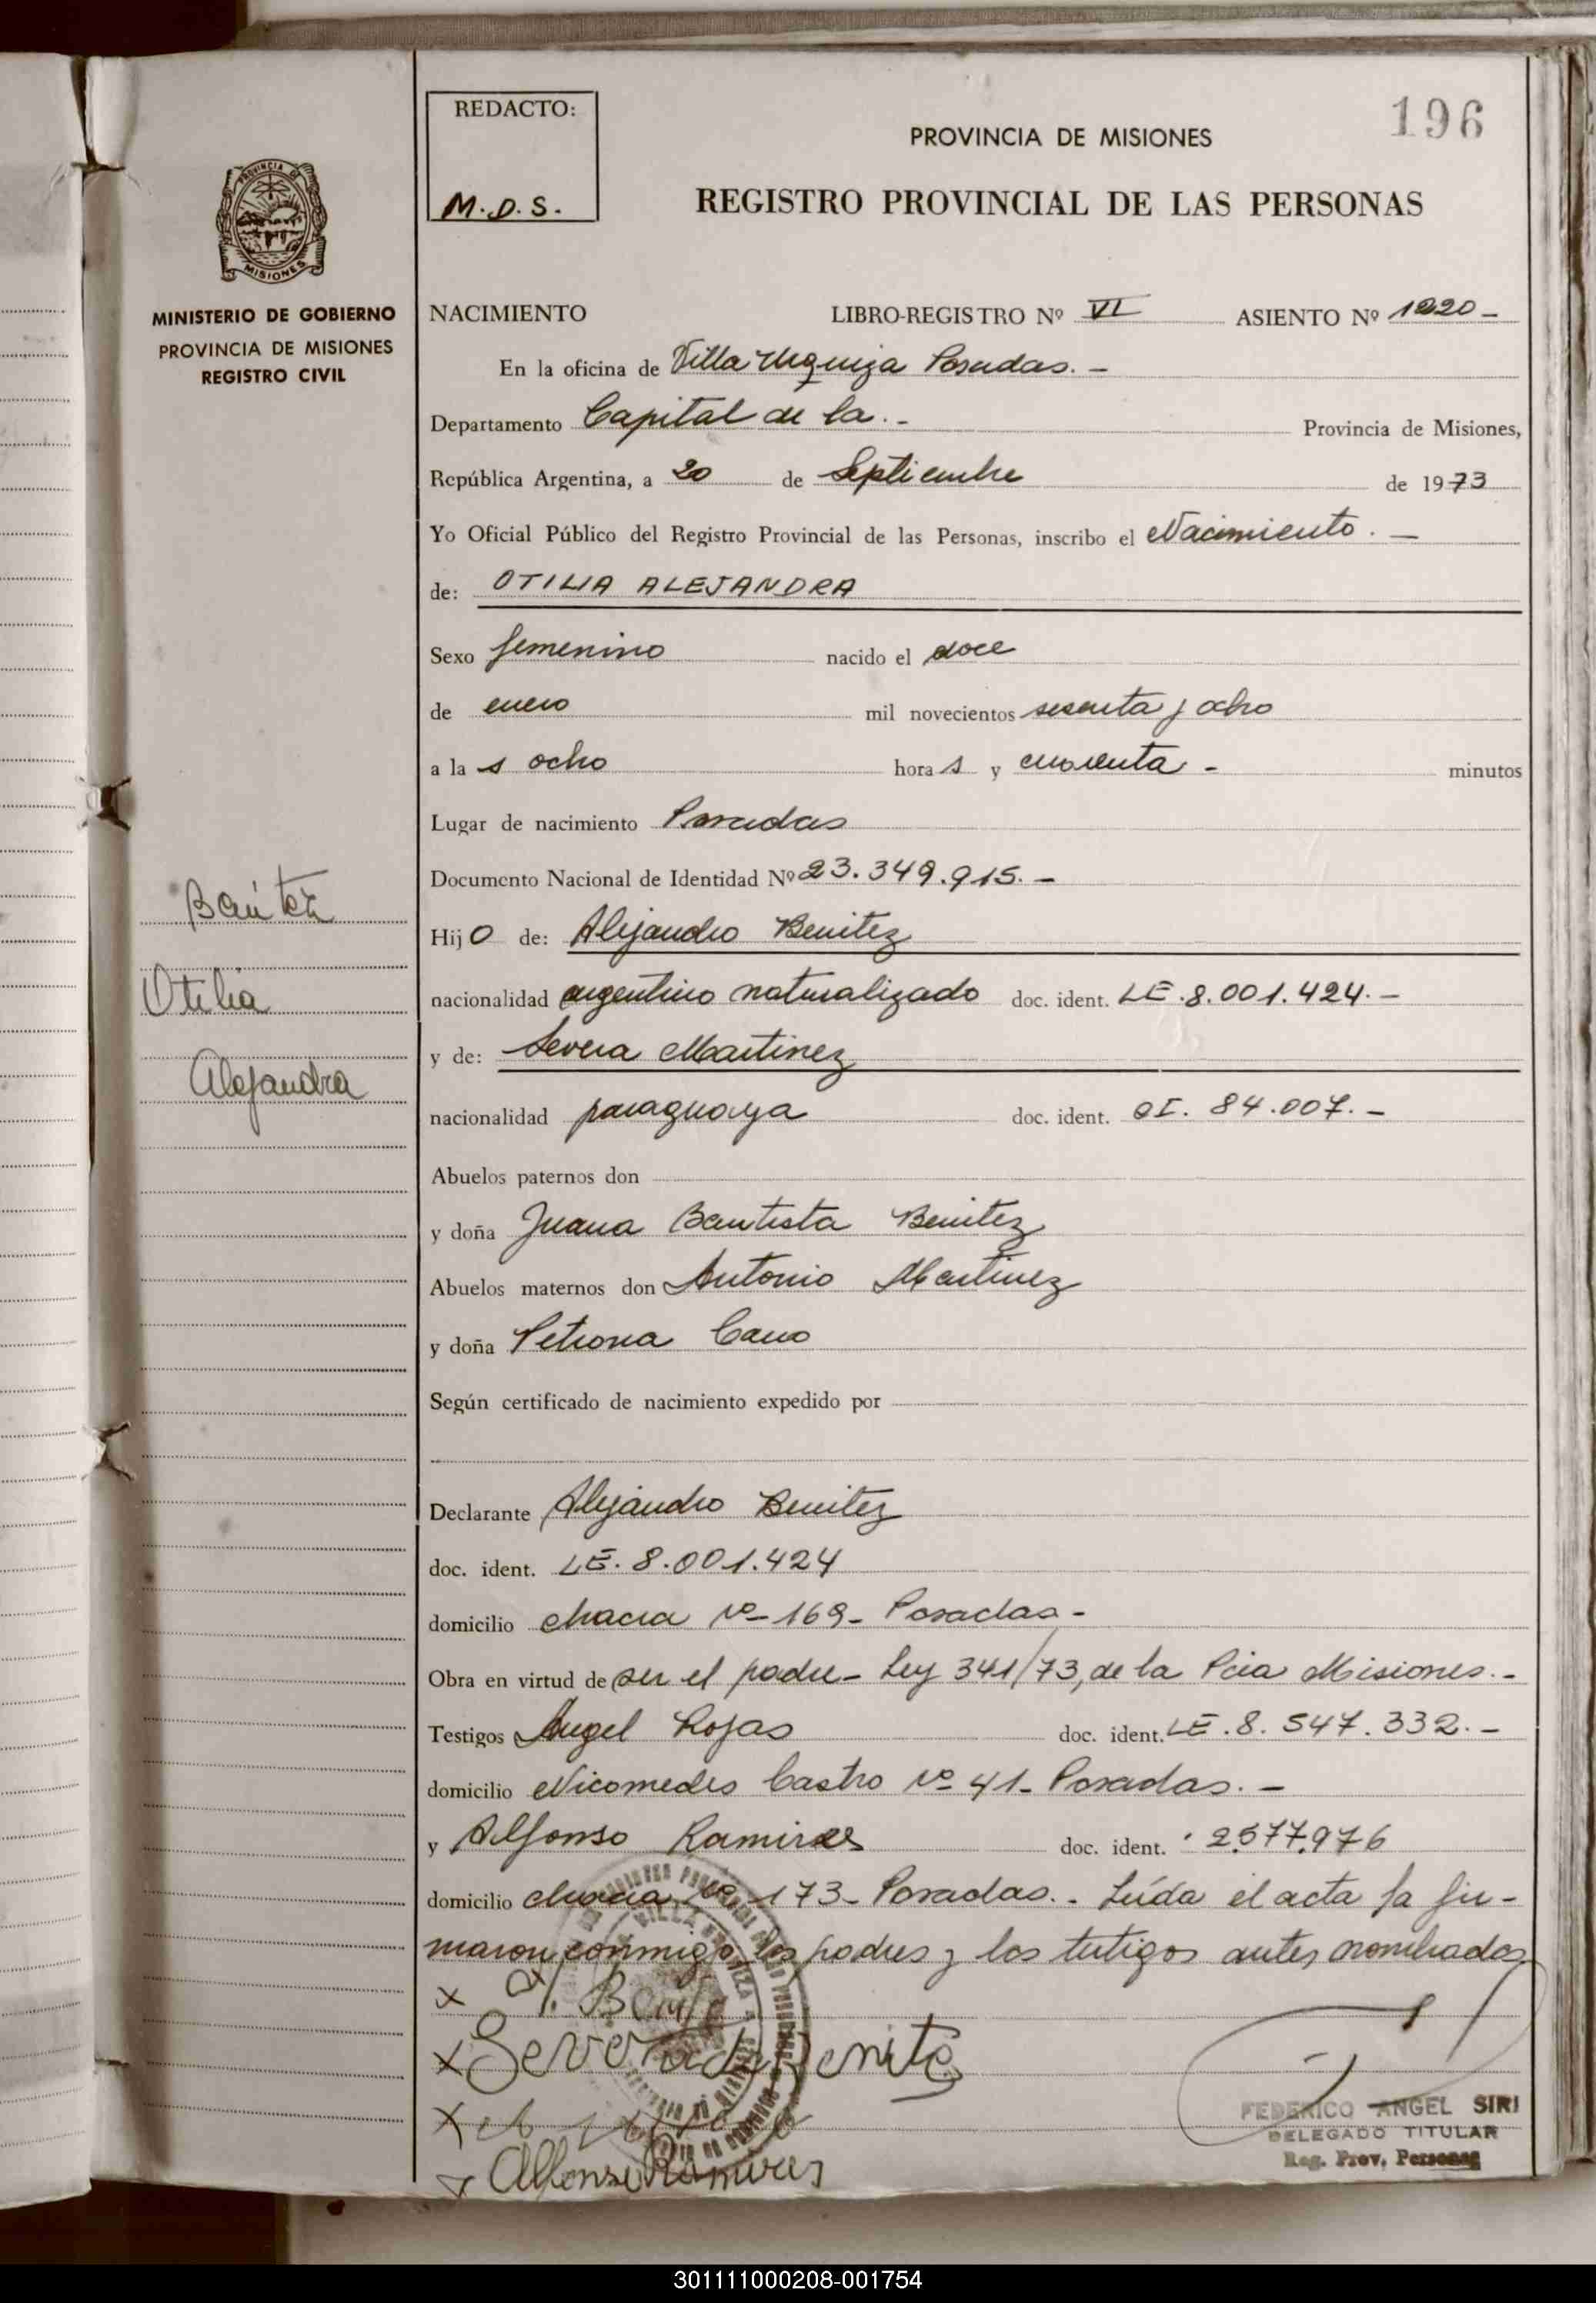 196
REDACTO:
M.D.S.
PROVINCIA DE MISIONES
REGISTRO PROVINCIAL DE LAS PERSONAS
PROVINCIA DE
MISIONES
MINISTERIO DE GOBIERNO
PROVINCIA DE MISIONES
REGISTRO CIVIL
NACIMIENTO LIBRO-REGISTRO Nº VI ASIENTO Nº 1220 -
En la oficina de Villa Urquiza Posadas. -
Departamento Capital de la. - Provincia de Misiones,
República Argentina, a 20 de Septiembre de 1973
Yo Oficial Público del Registro Provincial de las Personas, inscribo el Nacimiento. -
de: OTILIA ALEJANDRA
Sexo femenino nacido el doce
de enero mil novecientos sesenta y ocho
a la s ocho hora s y cuarenta - minutos
Lugar de nacimiento Posadas
Documento Nacional de Identidad Nº 23.349.915. -
Benitez
Otilia
Alejandra
Hij o de: Alejandro Benitez
nacionalidad argentino naturalizado doc. ident. LE.8.001.424. -
y de: Severa Martinez
nacionalidad paraguaya doc. ident. CI. 84.007. -
Abuelos paternos don
y doña Juana Bautista Benitez
Abuelos maternos don Antonio Martinez
y doña Petrona Cano
Según certificado de nacimiento expedido por
Declarante Alejandro Benitez
doc. ident. LE. 8.001.424
domicilio chacra Nº 169 - Posadas -
Obra en virtud de ser el padre - Ley 341/73, de la Pcia Misiones. -
Testigos Angel Rojas doc. ident. LE.8.547.332. -
domicilio Nicomedes Castro Nº 41 - Posadas. -
y Alfonso Ramires doc. ident. 2.577.976
domicilio chacra Nº 173 - Posadas. - Leída el acta la fir-
maron conmigo los padres y los testigos antes nombrados
x
x Severa de Benite
x
x Alfonso Ramires
FEDERICO ANGEL SIRI
DELEGADO TITULAR
Reg. Prov. Personas
301111000208-001754